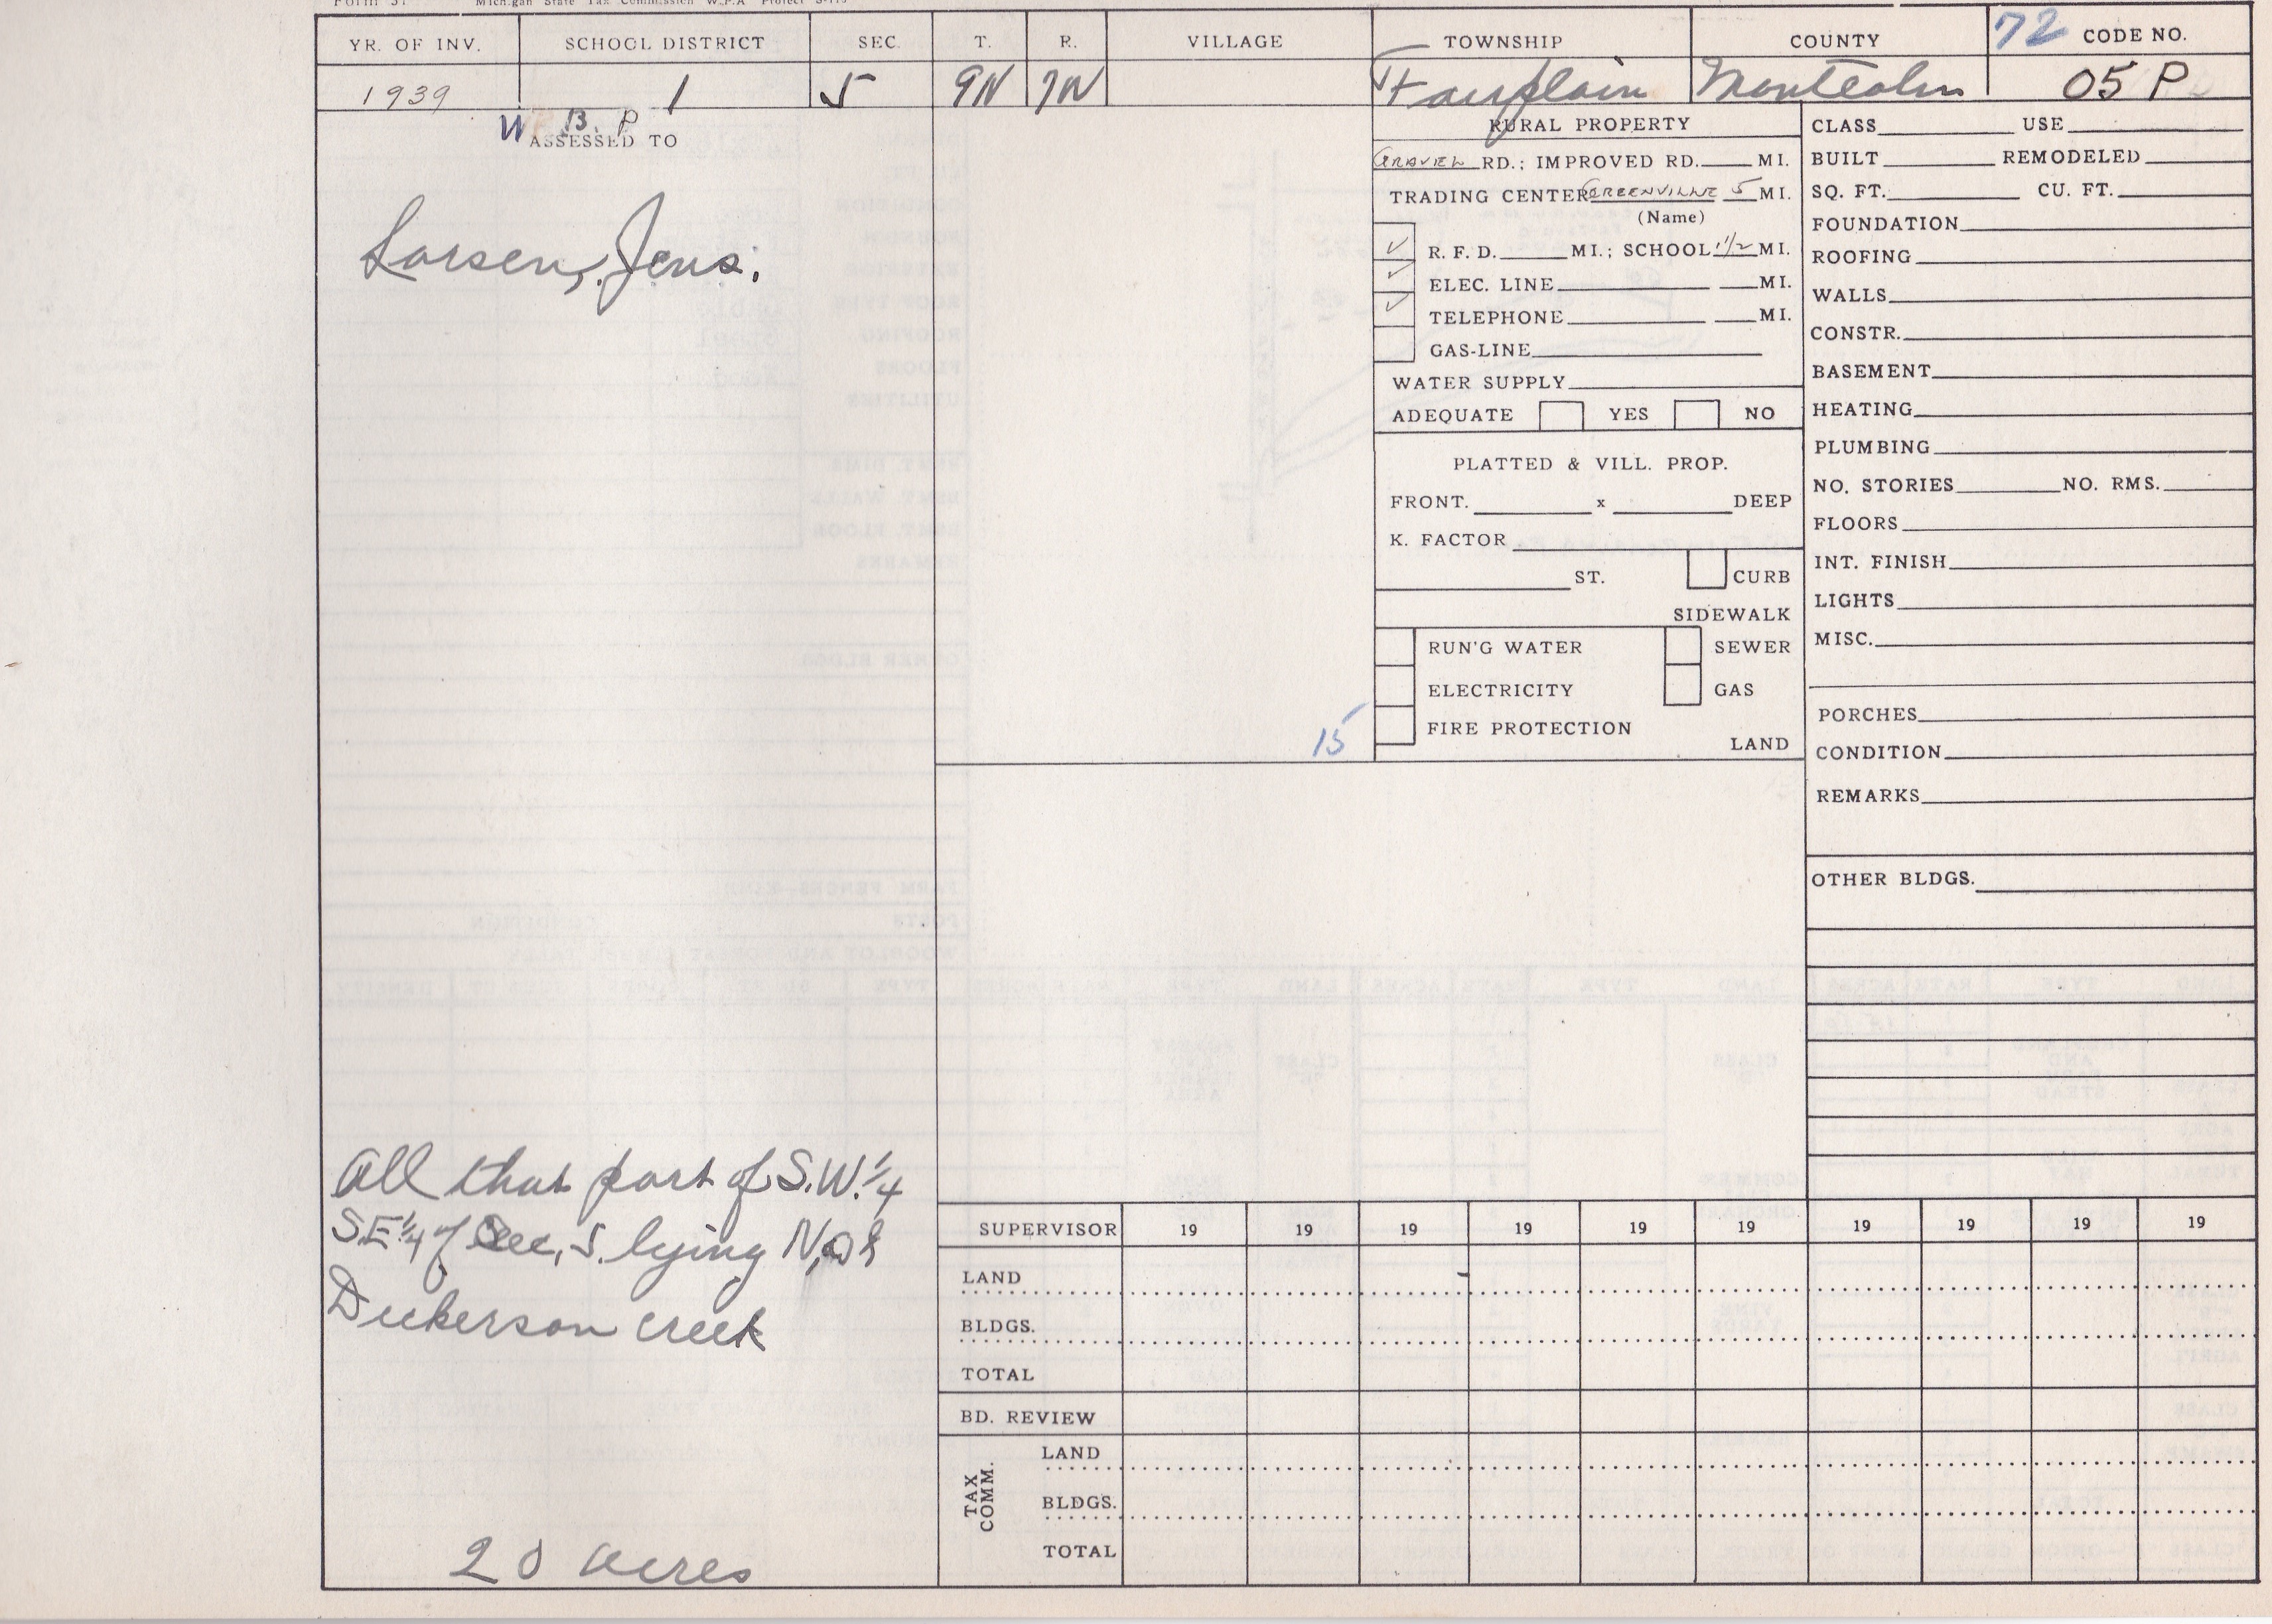 Form 3. Michigan State Tax Commission W.P.A Project
YR. OF INV. SCHOOL DISTRICT SEC. T. R. VILLAGE TOWNSHIP COUNTY 72 CODE NO.
1939 1 5 9N 7W Fairplain Montcalm 05 P
W B. P
ASSESSED TO
Larsen, Jens.
All that part of S.W. 1/4
S.E. 1/4 of Sec, 5. lying N, of
Dickerson Creek
20 acres
15
RURAL PROPERTY
GRAVEL RD.; IMPROVED RD. MI.
TRADING CENTER GREENVILLE 5 MI.
(Name)
✓ R. F. D. MI.; SCHOOL 1 1/2 MI.
✓ ELEC. LINE MI.
✓ TELEPHONE MI.
GAS-LINE
WATER SUPPLY
ADEQUATE YES NO
PLATTED & VILL. PROP.
FRONT. x DEEP
K. FACTOR
ST. CURB
SIDEWALK
RUN'G WATER SEWER
ELECTRICITY GAS
FIRE PROTECTION
LAND
CLASS USE
BUILT REMODELED
SQ. FT. CU. FT.
FOUNDATION
ROOFING
WALLS
CONSTR.
BASEMENT
HEATING
PLUMBING
NO. STORIES NO. RMS.
FLOORS
INT. FINISH
LIGHTS
MISC.
PORCHES
CONDITION
REMARKS
OTHER BLDGS.
SUPERVISOR 19 19 19 19 19 19 19 19 19 19
LAND
BLDGS.
TOTAL
BD. REVIEW
TAX COMM.
LAND
BLDGS.
TOTAL